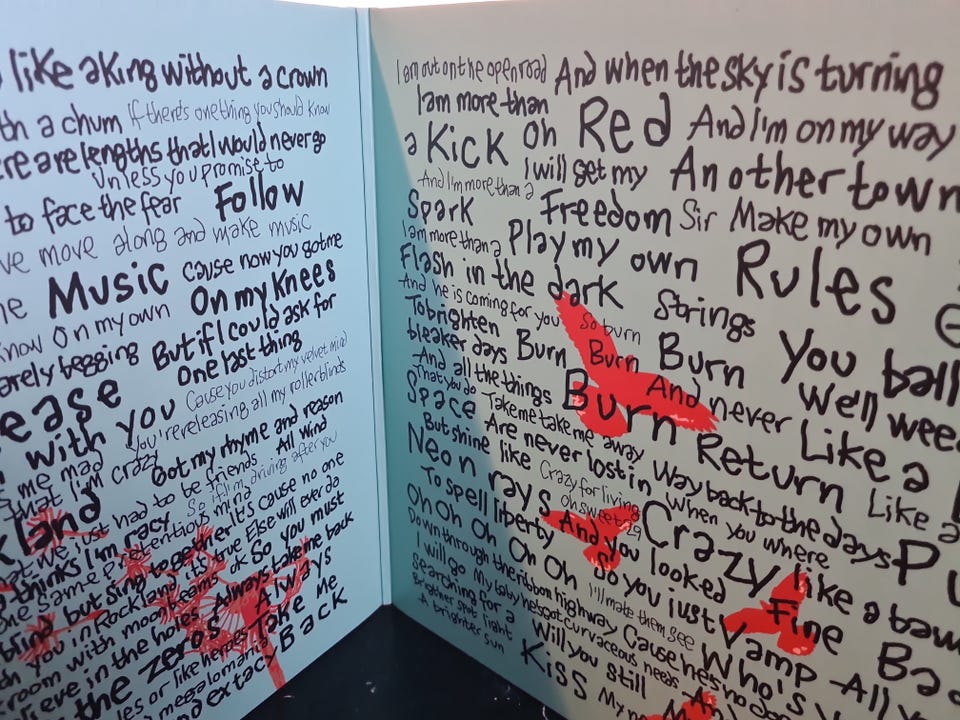 like a king without a crown
th a chum If there's one thing you should know
ere are lengths that I would never go
Unless you promise to
to face the fear Follow
ve move along and make music
he Music cause now you got me
know On my own On my Knees
arely begging But if I could ask for
ease One last thing
with you Cause you distort my velvet mind
me mad You're releasing all my rollerblinds
that I'm crazy Got my rhyme and reason
kland just had to be friends All wind
thinks I'm racy So if I'm driving after you
same pretentious mind It's cause no one
blind but sing together true Else will ever do
you in Rockland it's ok So you must
room with moonbeams Always take me back
eve in the holes Always
the zeros Take me
les or like heroes
megalomania Back
and extacy
I am out on the open road And when the sky is turning
I am more than
a Kick Oh Red And I'm on my way
I will get my Another town
And I'm more than a
Spark Freedom Sir Make my own
I am more than a Play my own Rules
Flash in the dark Strings
And he is coming for you So burn You ball
To brighten Burn Burn Burn
bleaker days Well wee
And all the things Burn And never Like a
That you do Take me take me away Return Like a
Space Are never lost in Way back to the days
But shine like Crazy for living When you where
Neon rays oh sweet 29 Crazy like a
To spell liberty And you looked
Oh Oh Oh Oh Oh So you just Fine
Down through the ribbon highway I'll make them see Vamp All
I will go My baby he's got curvaceous needs Cause he's no
Searching for a Who's
Brigther spot light Will you still
A brighter sun Kiss My